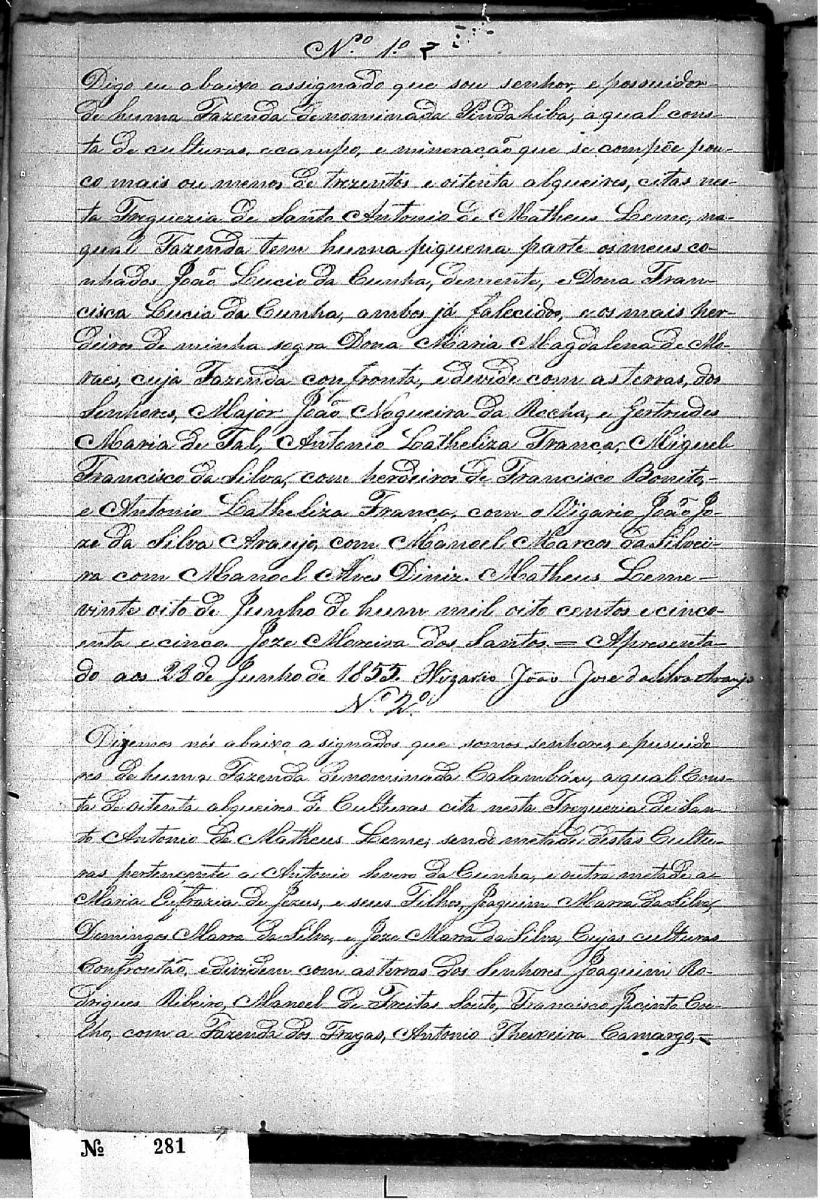 N.º 1.º
Digo eu abaixo assignado que sou senhor, e possuidor
de huma Fazenda denominada Pindahiba, a qual cons-
ta de culturas, e campo, e mineração que se compõe pou-
co mais ou menos de trezentos e oitenta alqueires, citas nes-
ta Freguezia de Santo Antonio de Matheus Leme, na
qual Fazenda tem huma piquena parte os meus cu-
nhados João Lucio da Cunha, demente, e Dona Fran-
cisca Lucia da Cunha, ambos já falecidos, e os mais her-
deiros de minha sogra Dona Maria Magdalena de Mo-
raes, cuja Fazenda confronta, e devide com as terras, dos
Senhores, Major João Nogueira da Rocha, e Gertrudes
Maria de Tal, Antonio Latheliza Franca, Miguel
Francisco da Silva, com herdeiros de Francisco Bonito,-
e Antonio Latheliza Franca, com o Vigario João Jo-
ze da Silva Araujo, com Manoel Marcos da Silvei-
ra com Manoel Alves Diniz. Matheus Leme-
vinte oito de Junho de hum mil oito centos e cinco-
enta e cinco Joze Moreira dos Santos. = Apresenta-
do aos 28 de Junho de 1855. Vigario João Jose da Silva Araujo
N.º 2.º
Dizemos nós abaixo asignados que somos senhores, e pusuido
res de huma Fazenda denominada Calambáu, a qual Cons-
ta de oitenta alqueires de Culturas cita nesta Freguezia de San-
to Antonio de Matheus Leme, sendo metade destas Cultu-
ras pertencente a Antonio da Cunha, e outra metade a
Maria Eufrazia de Jezus, e seus Filhos, Joaquim Marra da Silva,
Domingos Marra da Silva, e Joze Marra da Silva, Cujas culturas
Confrontão, e dividem com as terras dos Senhores Joaquim Ro-
drigues Ribeiro, Manoel de Freitas Souto, Francisco Jacinto Coe-
lho, com a Fazenda dos Fragas, Antonio Theixeira Camargo,=
Nº 281